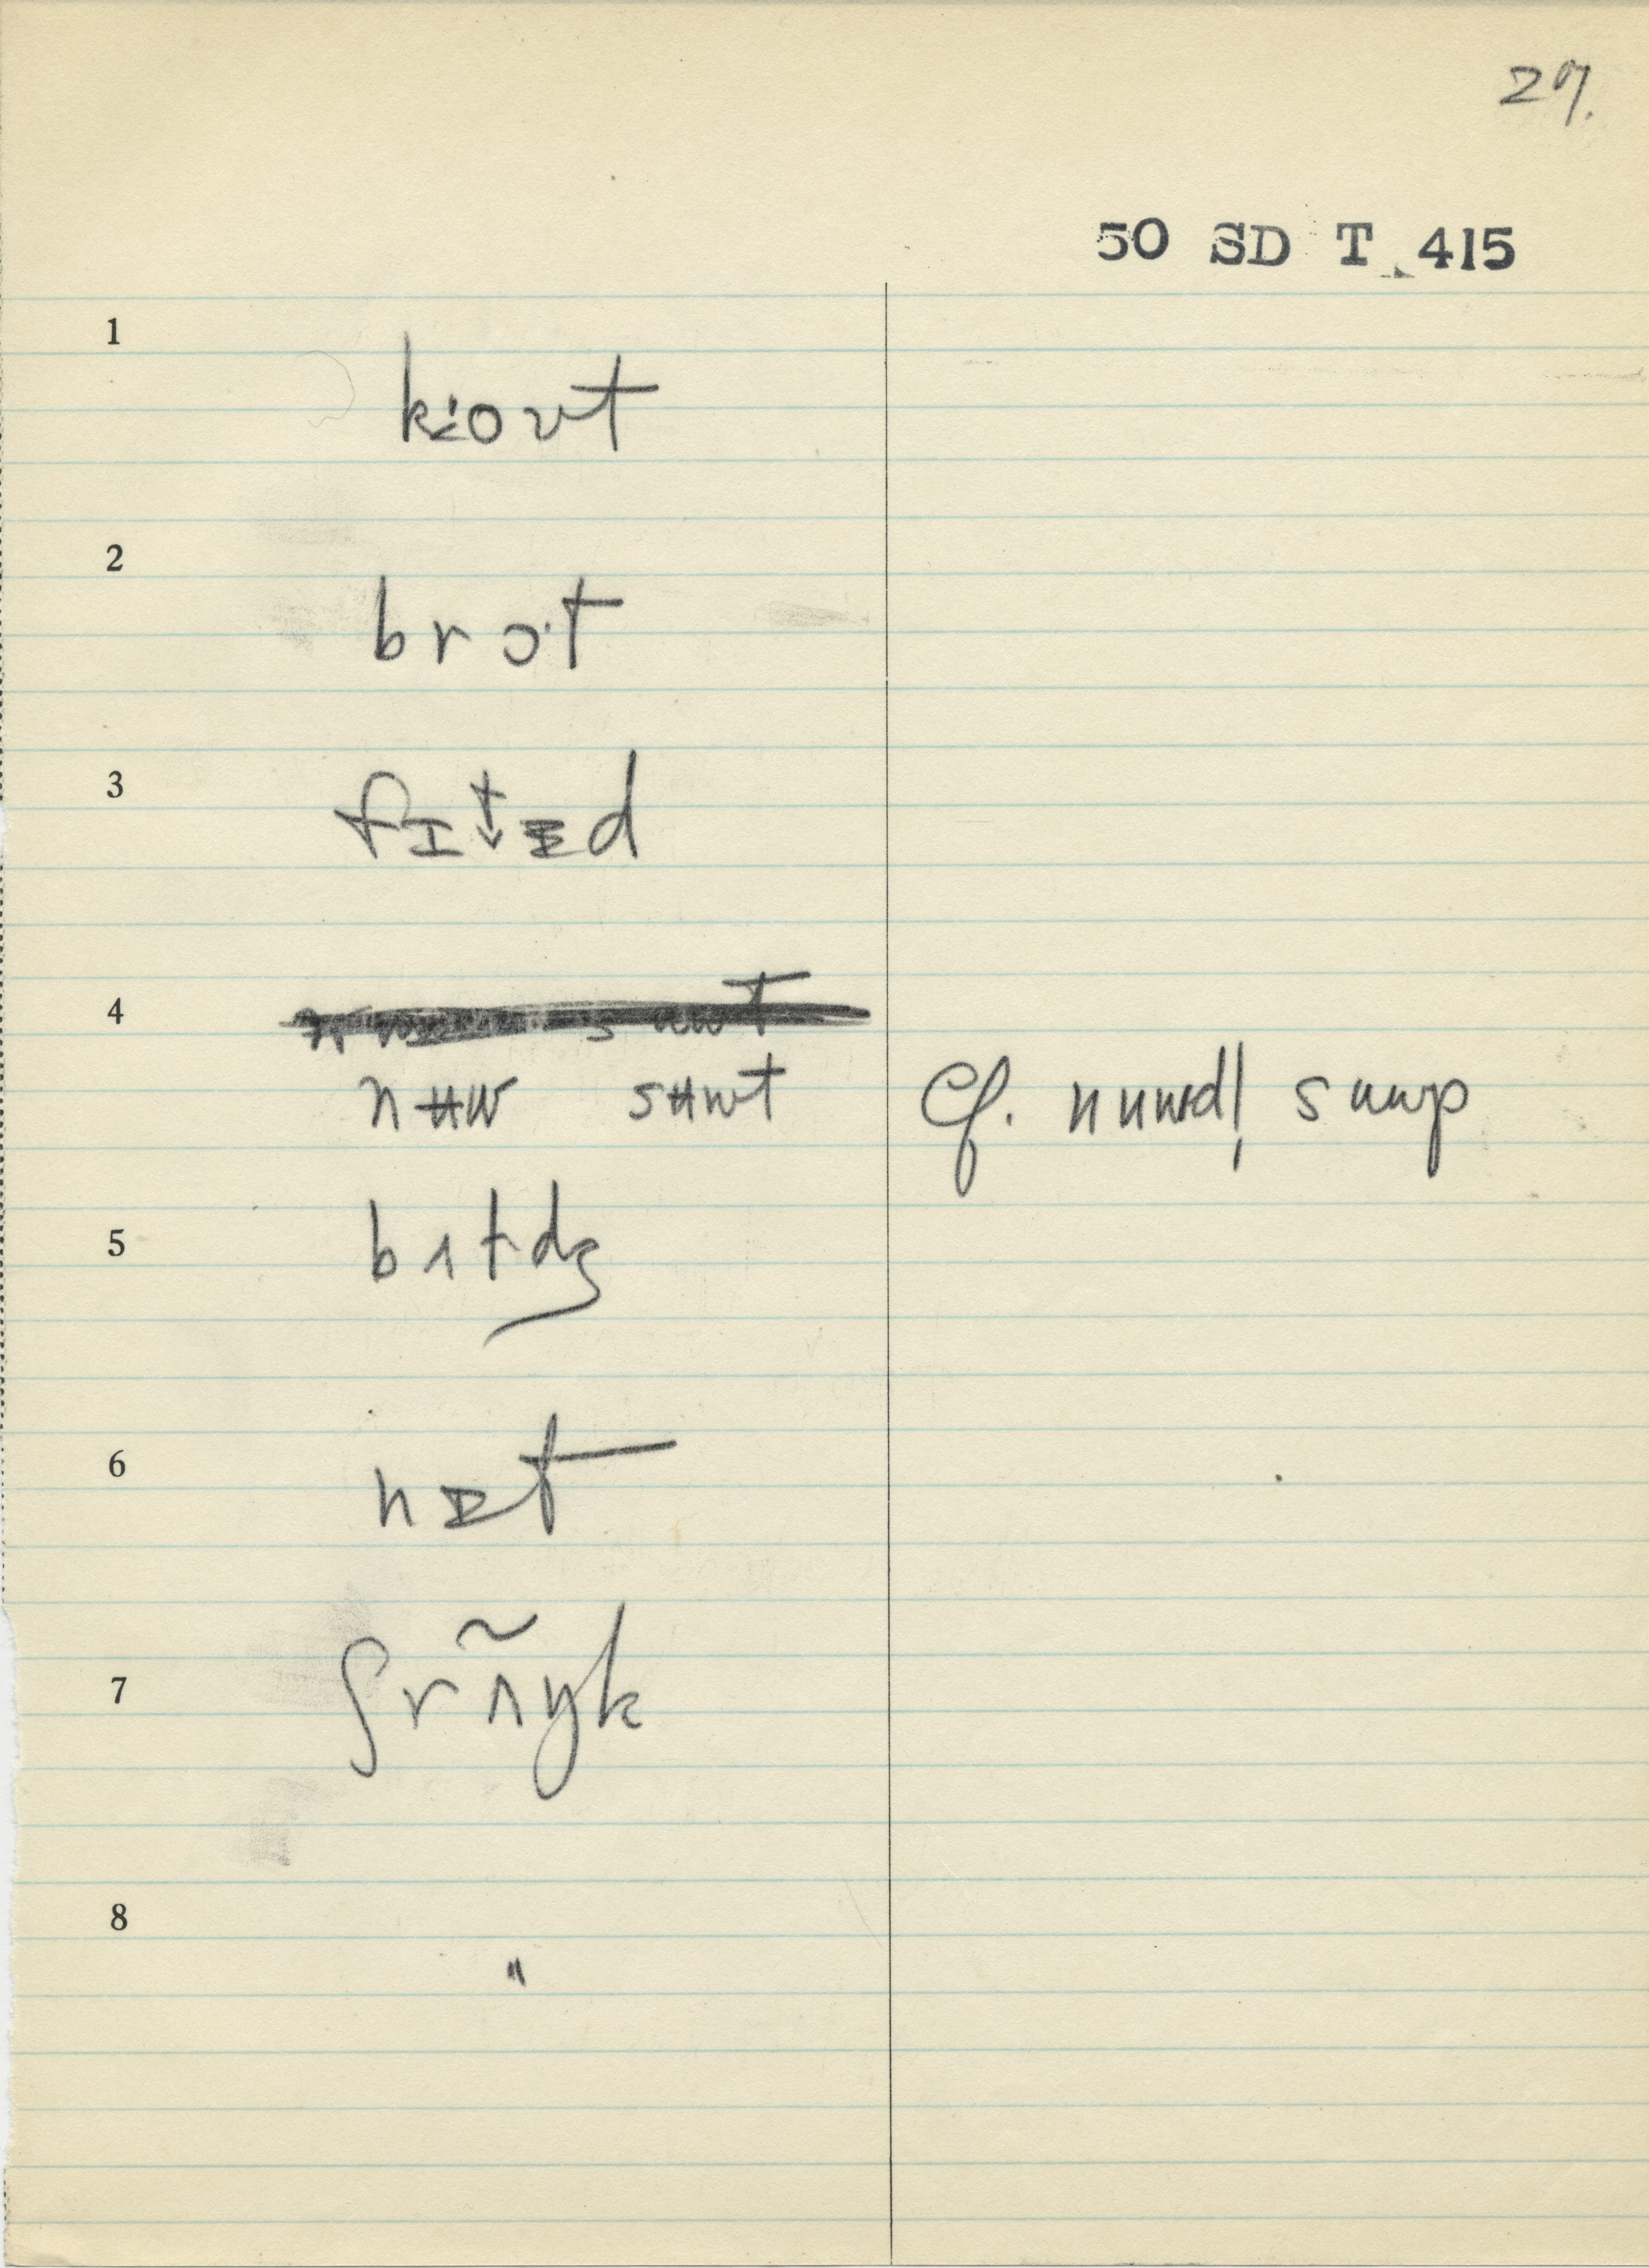 27.
50 SD T 415
1
k≤'oʊt
2
brɔ·t
3
fɪt↓ɪd
4
nʉw sʉwt Cf. nuwdl̩ suwp
5
bʌtdʒ
6
nɪt
7
ʃrʌ̃ŋk
8
"